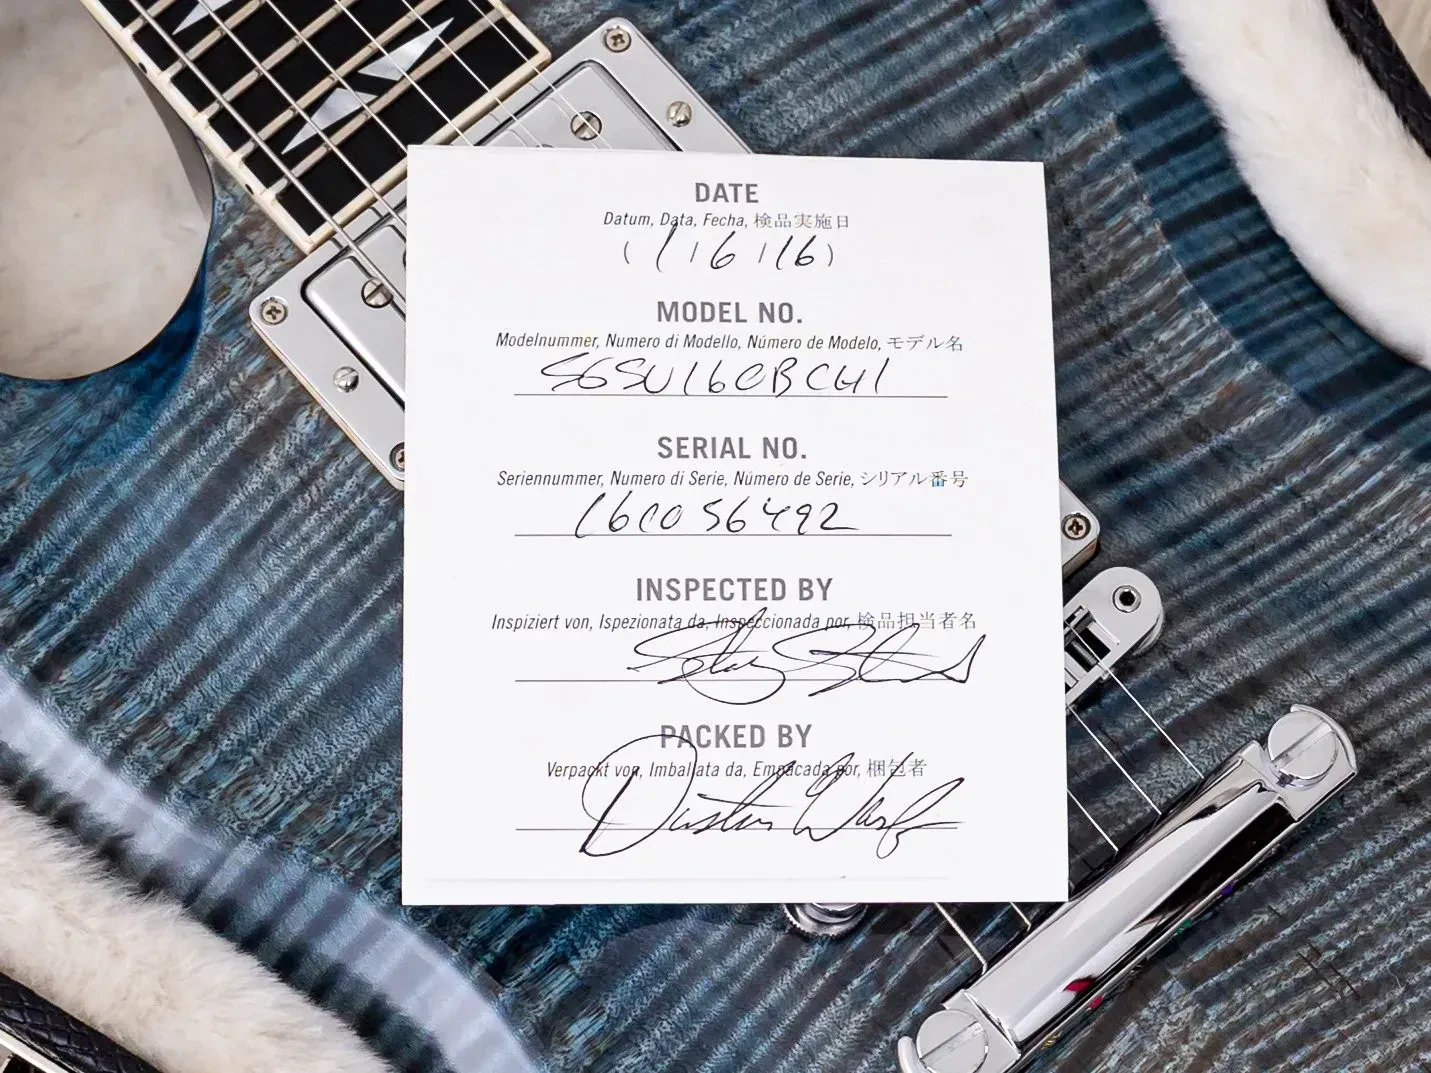 DATE
Datum, Data, Fecha, 検品実施日
(1/6/16)
MODEL NO.
Modelnummer, Numero di Modello, Número de Modelo, モデル名
SGSU160BCH1
SERIAL NO.
Seriennummer, Numero di Serie, Número de Serie, シリアル番号
160056492
INSPECTED BY
Inspiziert von, Ispezionata da, Inspeccionada por, 検品担当者名
PACKED BY
Verpackt von, Imballata da, Empacada por, 梱包者
Dustin